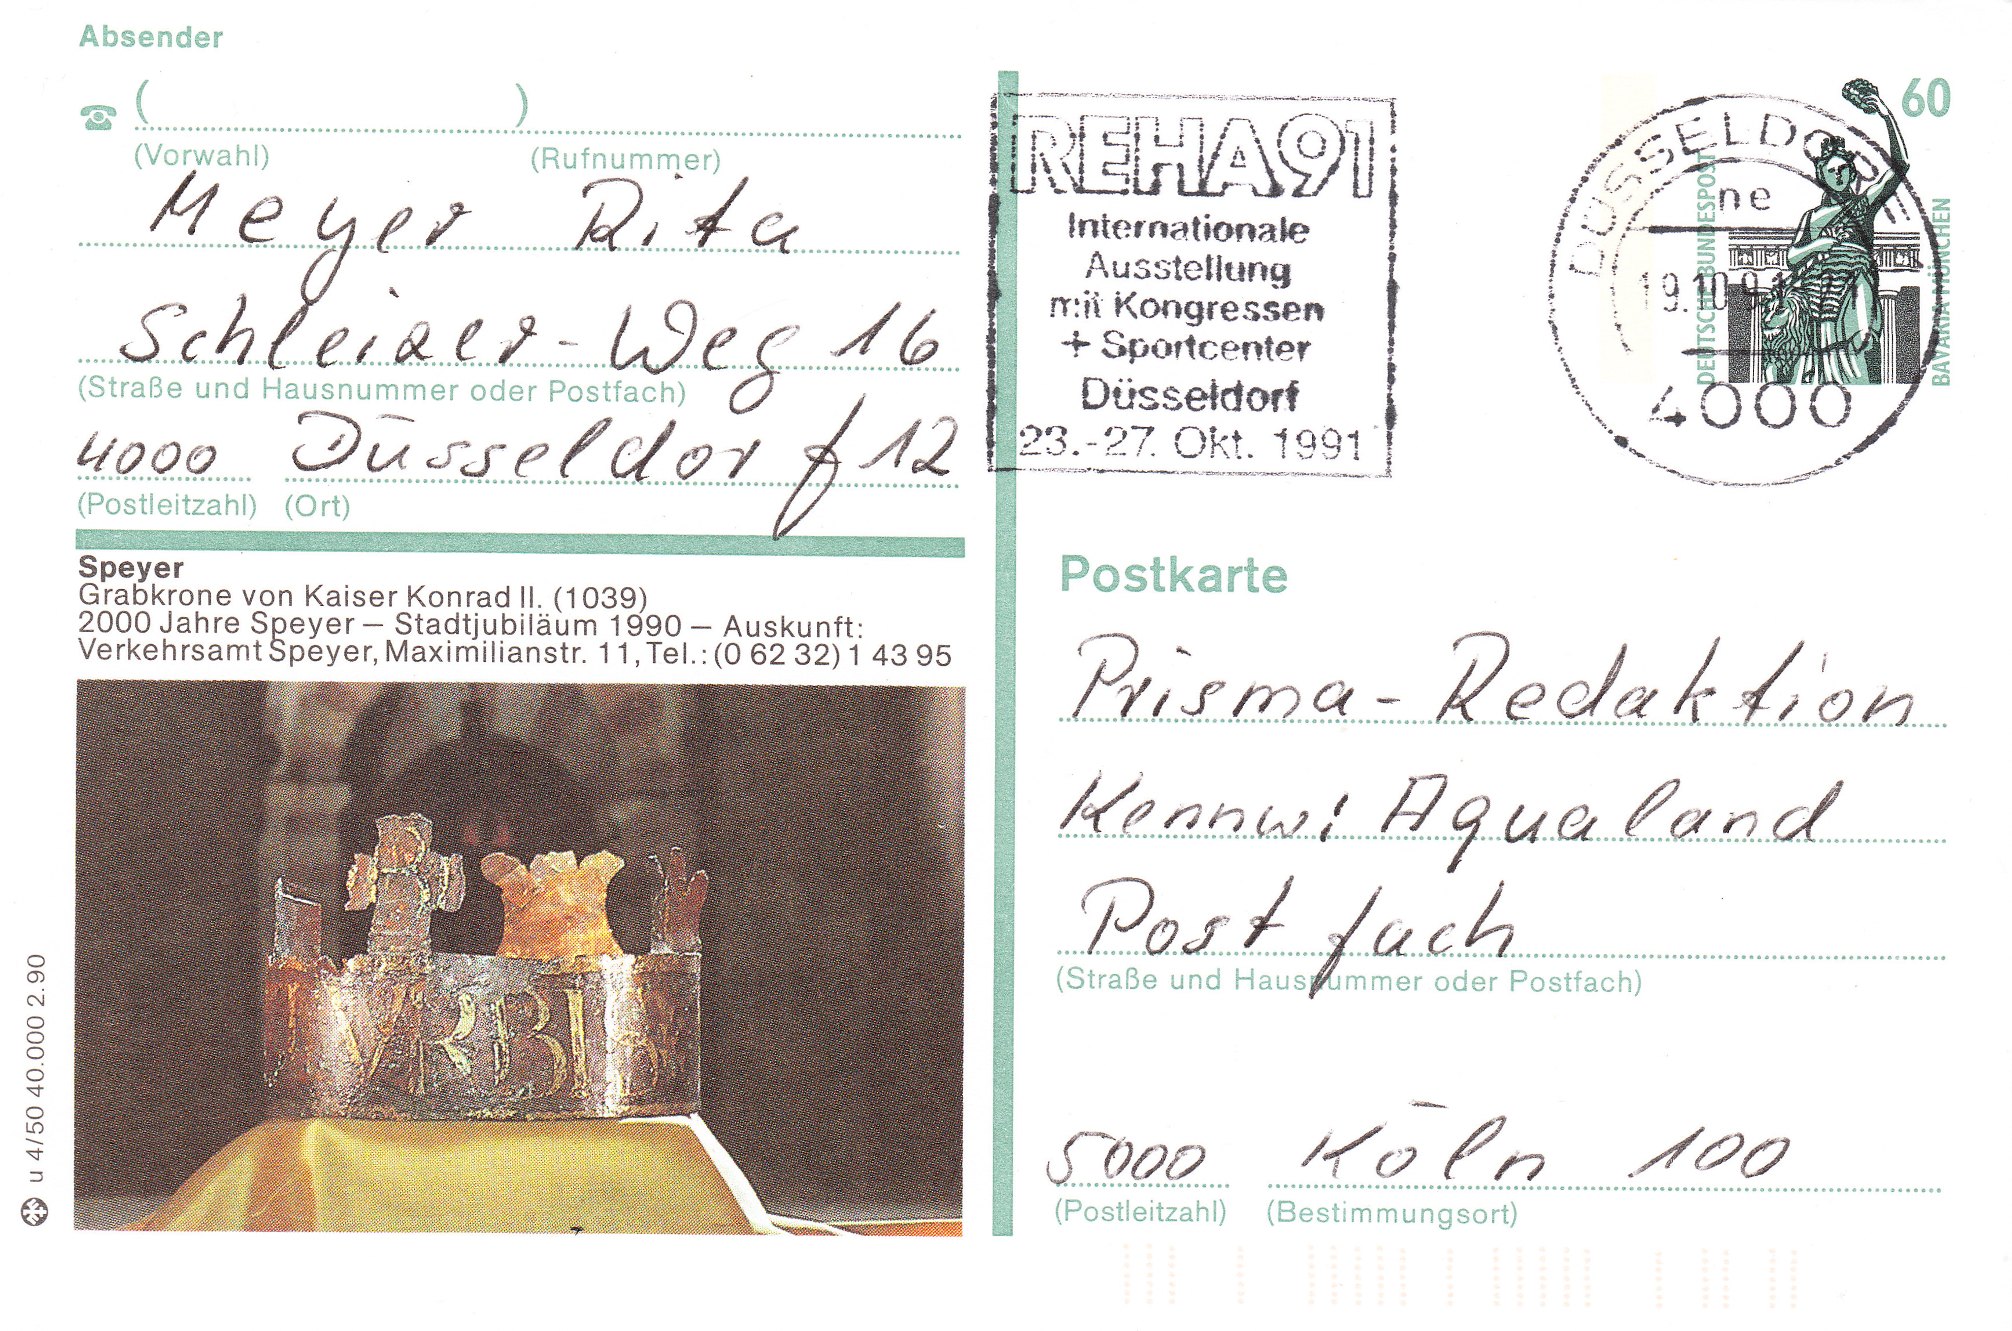 Absender
( )
(Vorwahl) (Rufnummer)
Meyer Rita
Schleizer-Weg 16
(Straße und Hausnummer oder Postfach)
4000 Düsseldorf 12
(Postleitzahl) (Ort)
Speyer
Grabkrone von Kaiser Konrad II. (1039)
2000 Jahre Speyer – Stadtjubiläum 1990 – Auskunft:
Verkehrsamt Speyer, Maximilianstr. 11, Tel.: (0 62 32) 1 43 95
VRBI
u 4/50 40.000 2.90
REHA91
Internationale
Ausstellung
mit Kongressen
+ Sportcenter
Düsseldorf
23.-27. Okt. 1991
DÜSSELDORF
ne
19.10.91
4000
60
DEUTSCHE BUNDESPOST
BAVARIA MÜNCHEN
Postkarte
Prisma-Redaktion
Kennw: Aqualand
Postfach
(Straße und Hausnummer oder Postfach)
5000 Köln 100
(Postleitzahl) (Bestimmungsort)